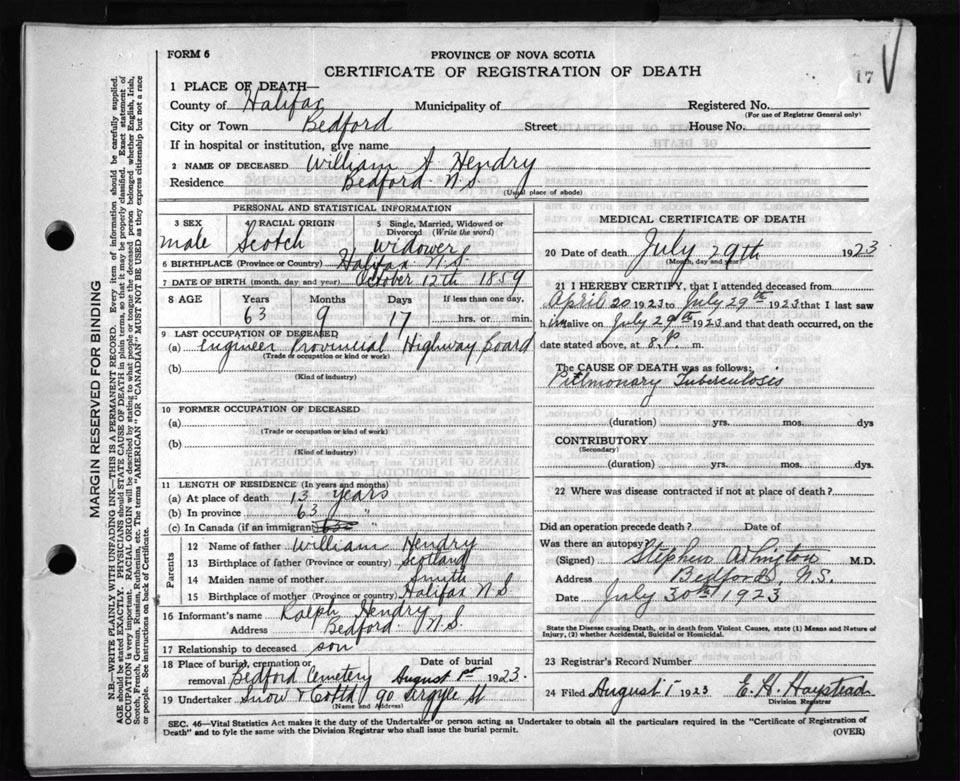 FORM 6
PROVINCE OF NOVA SCOTIA
CERTIFICATE OF REGISTRATION OF DEATH
17
1 PLACE OF DEATH—
County of Halifax Municipality of Registered No.
(For use of Registrar General only)
City or Town Bedford Street House No.
If in hospital or institution, give name
2 NAME OF DECEASED William A Hendry
Residence Bedford N.S
(Usual place of abode)
PERSONAL AND STATISTICAL INFORMATION
3 SEX male
4 RACIAL ORIGIN Scotch
5 Single, Married, Widowed or Divorced (Write the word) Widower
6 BIRTHPLACE (Province or Country) Halifax N.S.
7 DATE OF BIRTH (month, day, and year) October 12th 1859
8 AGE Years Months Days If less than one day,
63 9 17 hrs. or min.
9 LAST OCCUPATION OF DECEASED
(a) Engineer Provincial Highway Board
(Trade or occupation or kind or work)
(b)
(Kind of industry)
10 FORMER OCCUPATION OF DECEASED
(a)
(Trade or occupation or kind of work)
(b)
(Kind of industry)
11 LENGTH OF RESIDENCE (In years and months)
(a) At place of death 13 years
(b) In province 63 "
(c) In Canada (if an immigrant)
Parents
12 Name of father William Hendry
13 Birthplace of father (Province or country) Scotland
14 Maiden name of mother Smith
15 Birthplace of mother (Province or Country) Halifax N.S.
16 Informant's name Ralph Hendry
Address Bedford N.S.
17 Relationship to deceased son
18 Place of burial, cremation or removal Bedford Cemetery Date of burial August 1st 1923.
19 Undertaker Snow & 90 Argyle St
(Name and Address)
MEDICAL CERTIFICATE OF DEATH
20 Date of death July 29th 1923
(Month, day and year)
21 I HEREBY CERTIFY, that I attended deceased from
April 20 1923 to July 29th 1923 that I last saw
him alive on July 29th 1923 and that death occurred, on the
date stated above, at 8 P. m.
The CAUSE OF DEATH was as follows;
Pulmonary Tuberculosis
(duration) yrs. mos. dys
CONTRIBUTORY
(Secondary)
(duration) yrs. mos. dys.
22 Where was disease contracted if not at place of death?
Did an operation precede death? Date of
Was there an autopsy?
(Signed) Stephen M.D.
Address Bedford, N.S.
Date July 30th 1923
State the Disease causing Death, or in death from Violent Causes, state (1) Means and Nature of
Injury, (2) whether Accidental, Suicidal or Homicidal.
23 Registrar's Record Number
24 Filed August 1 1923 E. H. Haystead
Division Registrar
SEC. 46—Vital Statistics Act makes it the duty of the Undertaker or person acting as Undertaker to obtain all the particulars required in the "Certificate of Registration of
Death" and to fyle the same with the Division Registrar who shall issue the burial permit.
(OVER)
MARGIN RESERVED FOR BINDING
N.B.—WRITE PLAINLY WITH UNFADING INK—THIS IS A PERMANENT RECORD. Every item of information should be carefully supplied.
AGE should be stated EXACTLY. PHYSICIANS should STATE CAUSE OF DEATH in plain terms, so that it may be properly classified. Exact statement of
OCCUPATION is very important. RACIAL ORIGIN will be described by stating to what people or tongue the deceased person belonged whether English, Irish,
Scotch, French, German, Russian, Ruthenian, etc. The terms "AMERICAN" OR "CANADIAN" MUST NOT BE USED as they express citizenship but not a race
or people. See instructions on back of Certificate.